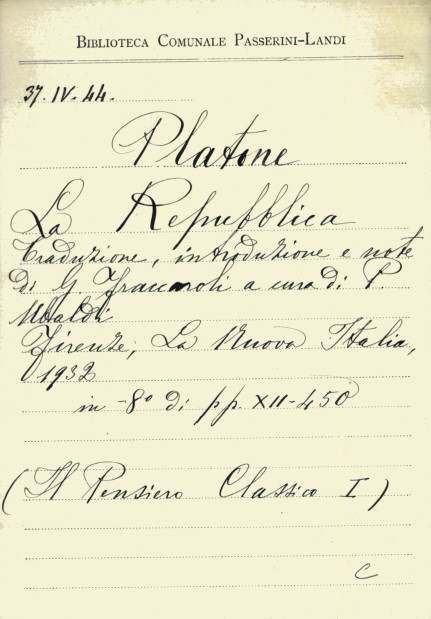 BIBLIOTECA COMUNALE PASSERINI-LANDI
37.IV.44.
Platone
La Repubblica
Traduzione, introduzione e note
di G. Fraccaroli a cura di P.
Ubaldi
Firenze, La Nuova Italia,
1932
in -8° di pp. XII-450
(Il Pensiero Classico I)
C